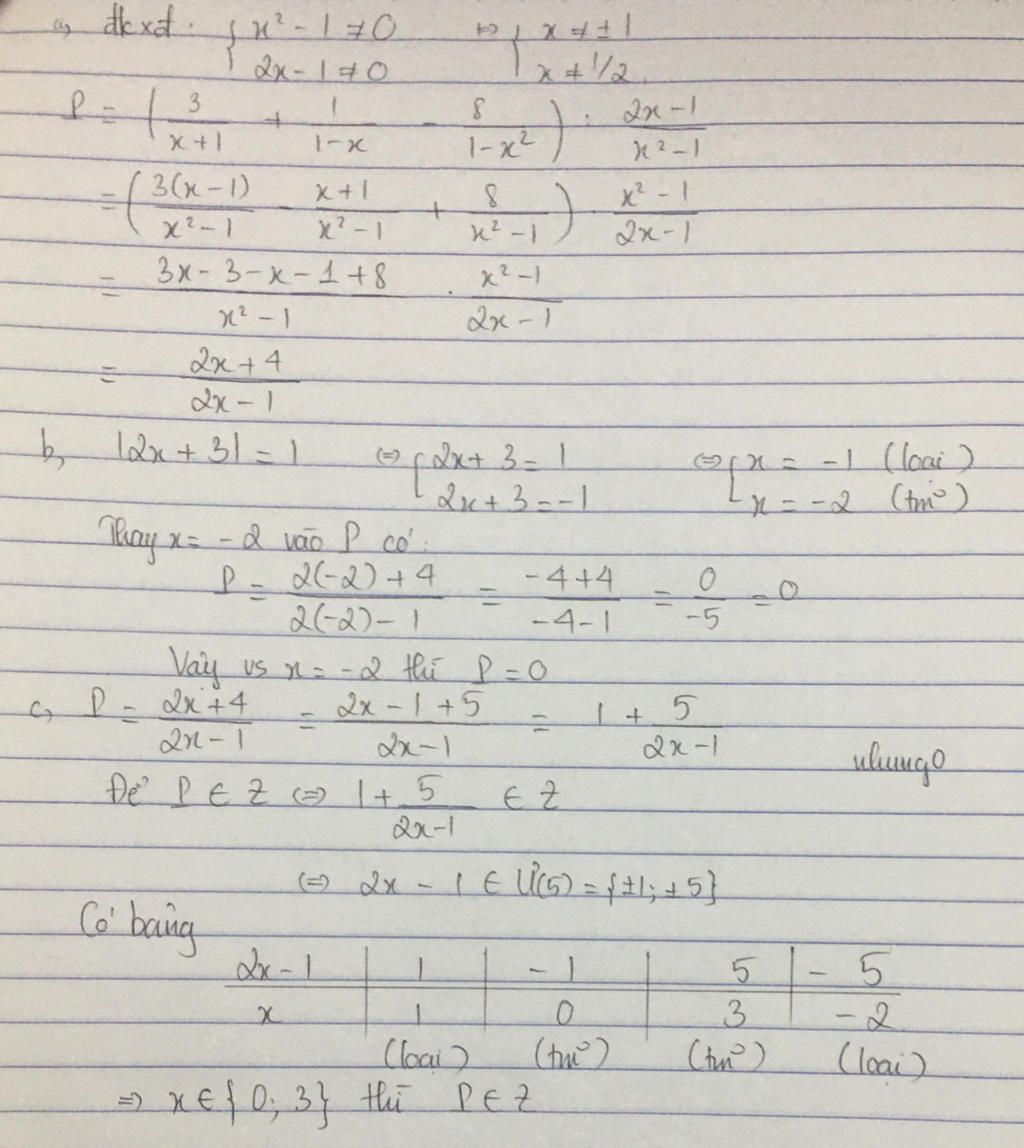 a, đkxđ: { x² - 1 ≠ 0 ⇔ { x ≠ ±1
2x - 1 ≠ 0 x ≠ 1/2
P = ( 3/(x+1) + 1/(1-x) - 8/(1-x²) ) : (2x-1)/(x²-1)
= ( 3(x-1)/(x²-1) - (x+1)/(x²-1) + 8/(x²-1) ) . (x²-1)/(2x-1)
= (3x-3-x-1+8)/(x²-1) . (x²-1)/(2x-1)
= (2x+4)/(2x-1)
b, |2x+3| = 1 ⇔ [ 2x+3 = 1 ⇔ [ x = -1 (loại)
2x+3 = -1 x = -2 (tm)
Thay x = -2 vào P có:
P = (2(-2)+4)/(2(-2)-1) = (-4+4)/(-4-1) = 0/-5 = 0
Vậy vs x = -2 thì P = 0
c, P = (2x+4)/(2x-1) = (2x-1+5)/(2x-1) = 1 + 5/(2x-1)
nhung0
Để P ∈ Z ⇔ 1 + 5/(2x-1) ∈ Z
⇔ 2x - 1 ∈ Ư(5) = {±1; ±5}
Có bảng
2x-1 | 1 | -1 | 5 | -5
x | 1 | 0 | 3 | -2
(loại) (tm) (tm) (loại)
⇒ x ∈ {0; 3} thì P ∈ Z